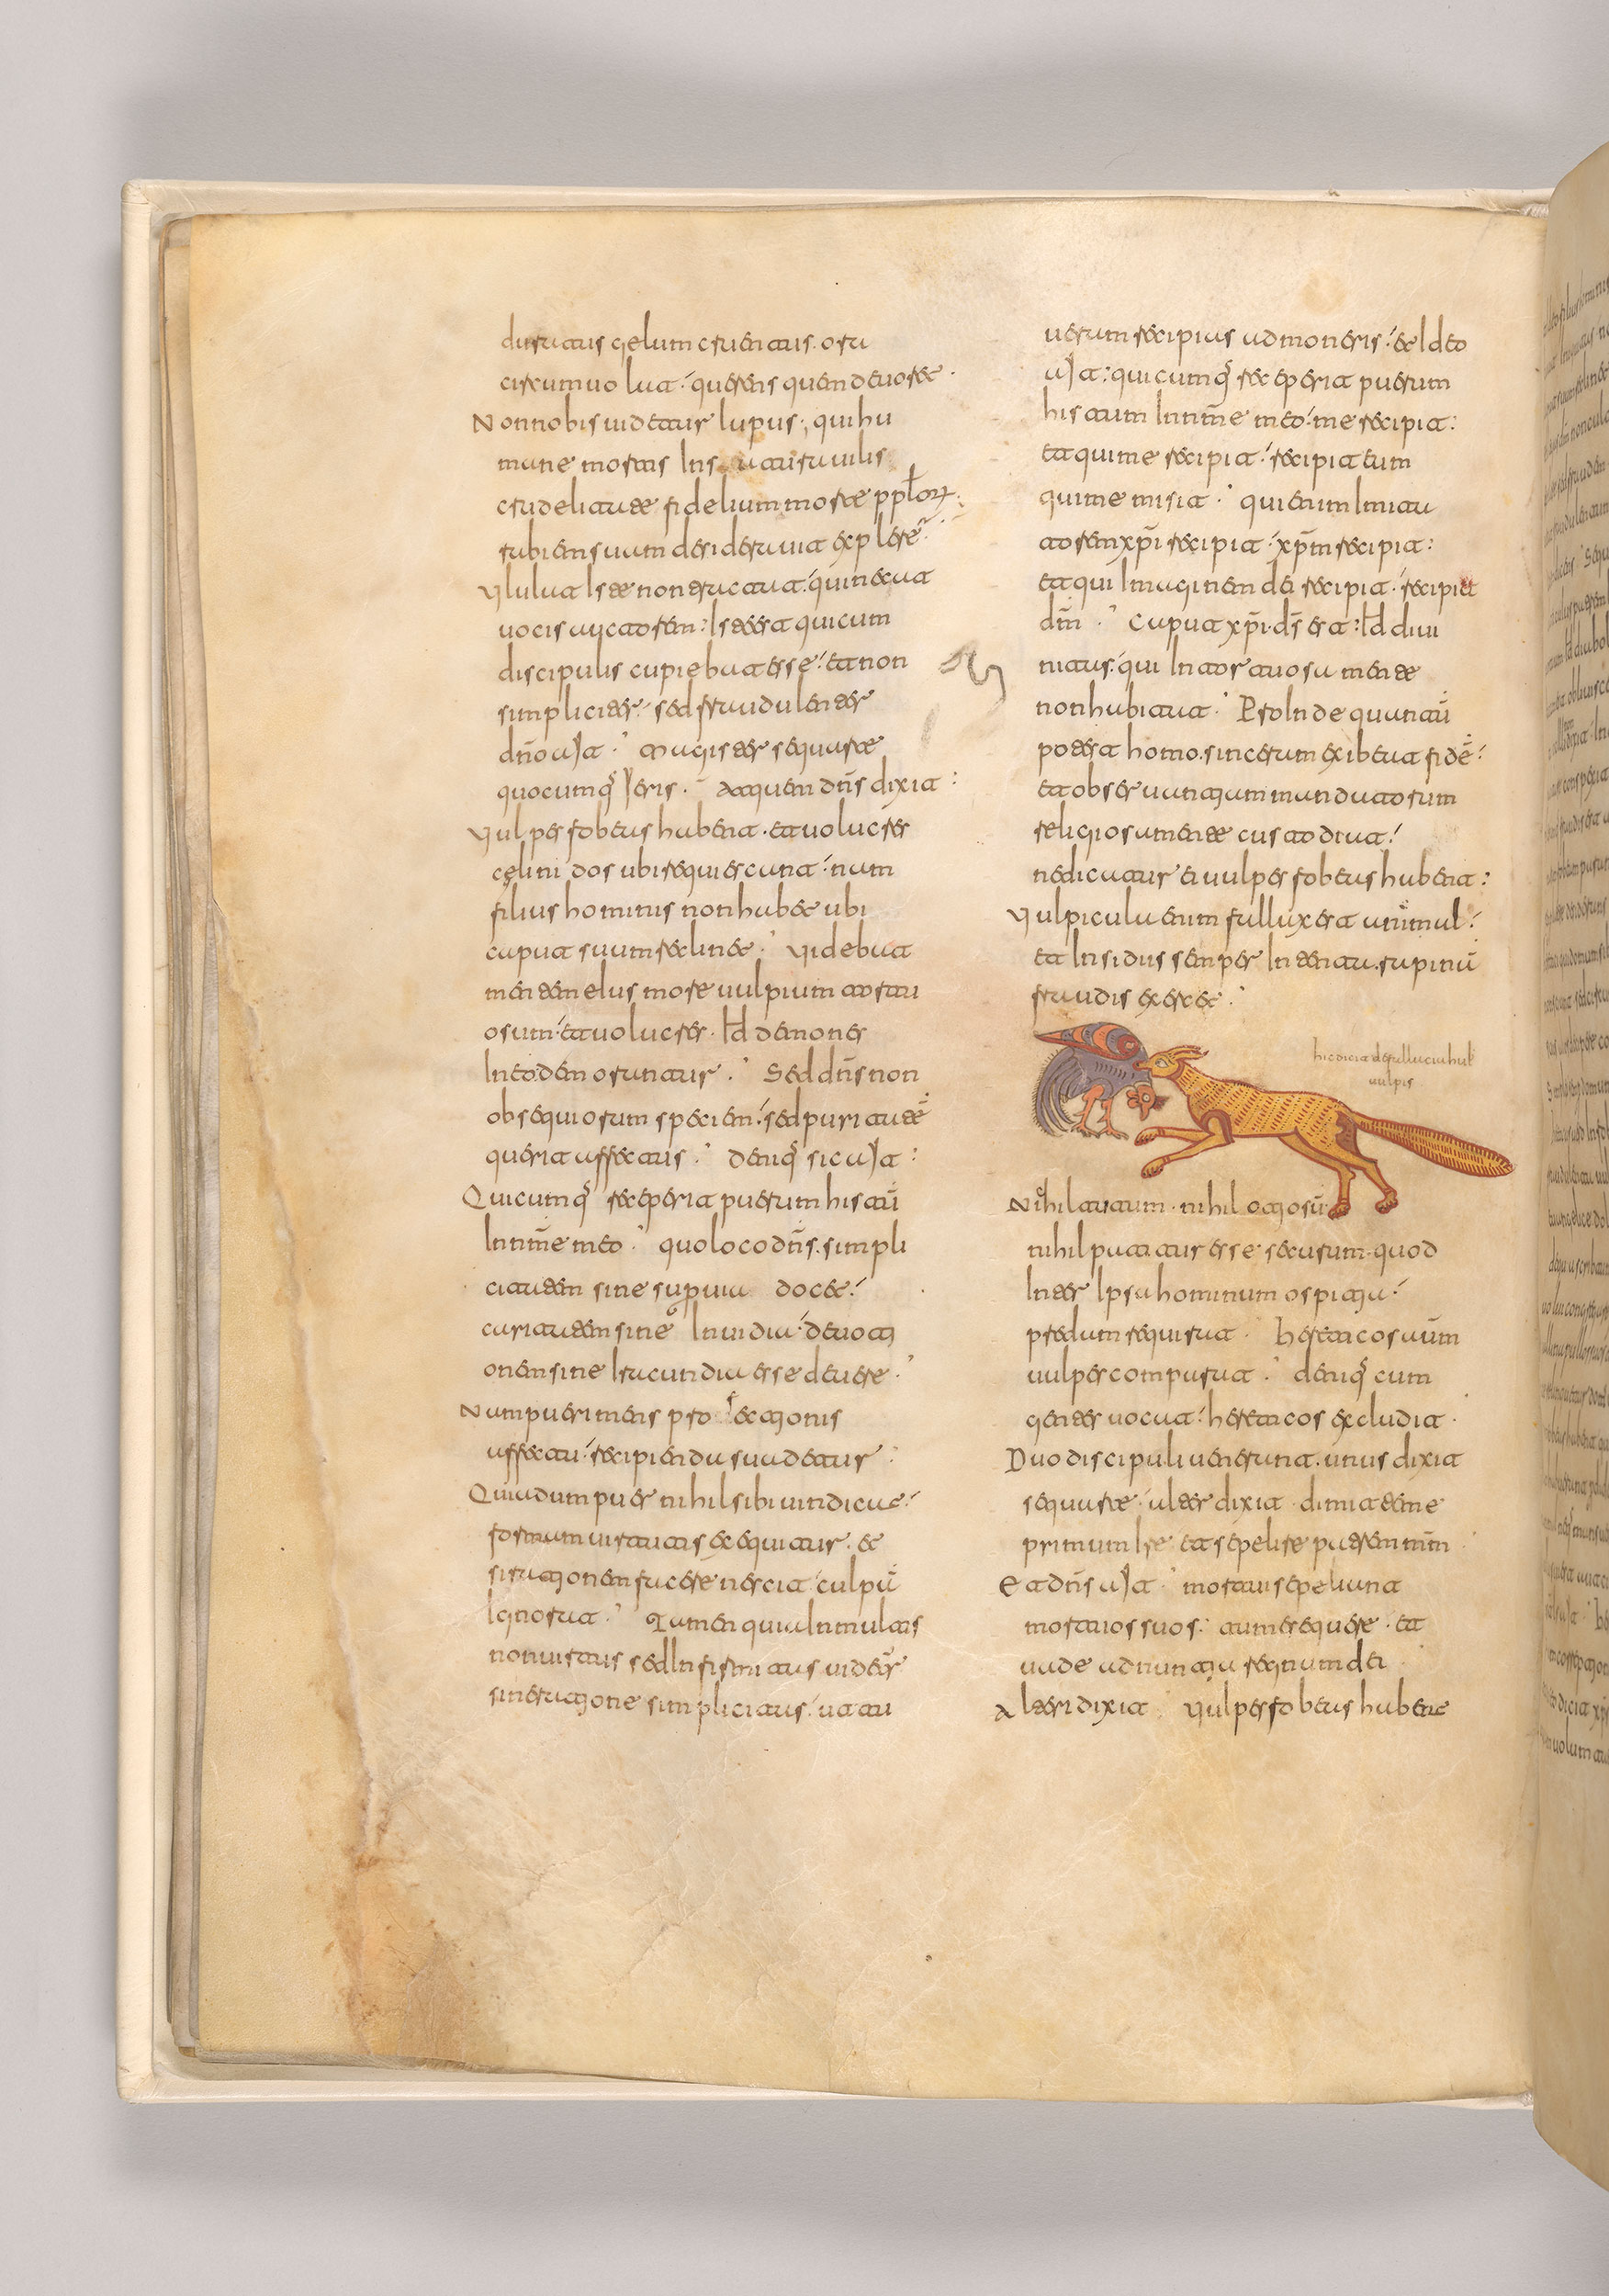 duratus gelum cruentatis. ora
circumuolat: querens quem deuoret.
Non nobis uidetur lupus. qui hu
mane mortis insatiauilis
crudelitate fidelium morte pplorum:
rabiem suam desiderauit explere.
Vlulat iste non eructat: qui necat
uocis auctorem: iste erat qui cum
discipulis cupiebat esse: et non
simpliciter: sed fraudulenter
dño ait. Magister sequar te
quocumq ieris. Ad quem dñs dixit:
Vulpes fobeas habent. et uolucres
celi nidos ubi requiescant: nam
filius hominis non habet ubi
caput suum reclinet. Videbat
mentem eius more uulpium tortu
osam: et uolucres. id demones
in eo demorantur. Sed dñs non
obsequiorum speciem: sed puritatē
querit affectus. deniq sic ait:
Quicumq receperit puerum histū
in nm̄e meo. quo loco dñs. simpli
citatem sine supuia docet:
caritatem sine inuidia: deuoti
onem sine iracundia esse debere.
Nam pueri mens pro fectionis
affectu: recipienda suadetur.
Quia dum puer nihil sibi uindicat:
formam uirtutis exequitur. et
si rationem facere nescit: culpā
ignorat. Tamen quia in multis
non uirtus sed infirmitas uidetur
sine ratione simplicitas: ut tu
uerum recipias admoneris: et ideo
ait: quicumq receperit puerum
histum in nm̄e meo: me recipit:
et qui me recipit: recipit eum
qui me misit. qui enim imita
torem xp̄i recipit: xp̄m recipit:
et qui imaginem dei recipit: recipiet
dm̄. Caput xp̄i. ds̄ est: id diui
nitas: qui in tortuosa mente
non habitat. Proinde quantū
potest homo. sincerum exibeat fidē:
et obseruantiam mandatorum
religiosa mente custodiat:
ne dicatur ei uulpes fobeas habent:
Vulpicula enim fallax est animal:
et insidiis semper intenta. rapinā
fraudis exercet.
hic dicit de fallacia hui
uulpis
Nihil tutum. nihil otiosū.
nihil putatur esse securum. quod
inter ipsa hominum ospitia:
predam requirat. Hereticos autem
uulpes computat. deniq cum
gentes uocat: hereticos excludit.
Duo discipuli uenerunt. unus dixit
sequar te: alter dixit. dimitte me
primum ire et sepelire patrem mm̄.
Et dñs ait. mortui sepeliant
mortuos suos: tu me sequere. et
uade adnuntia regnum dei.
Alteri dixit. Vulpes fobeas habent